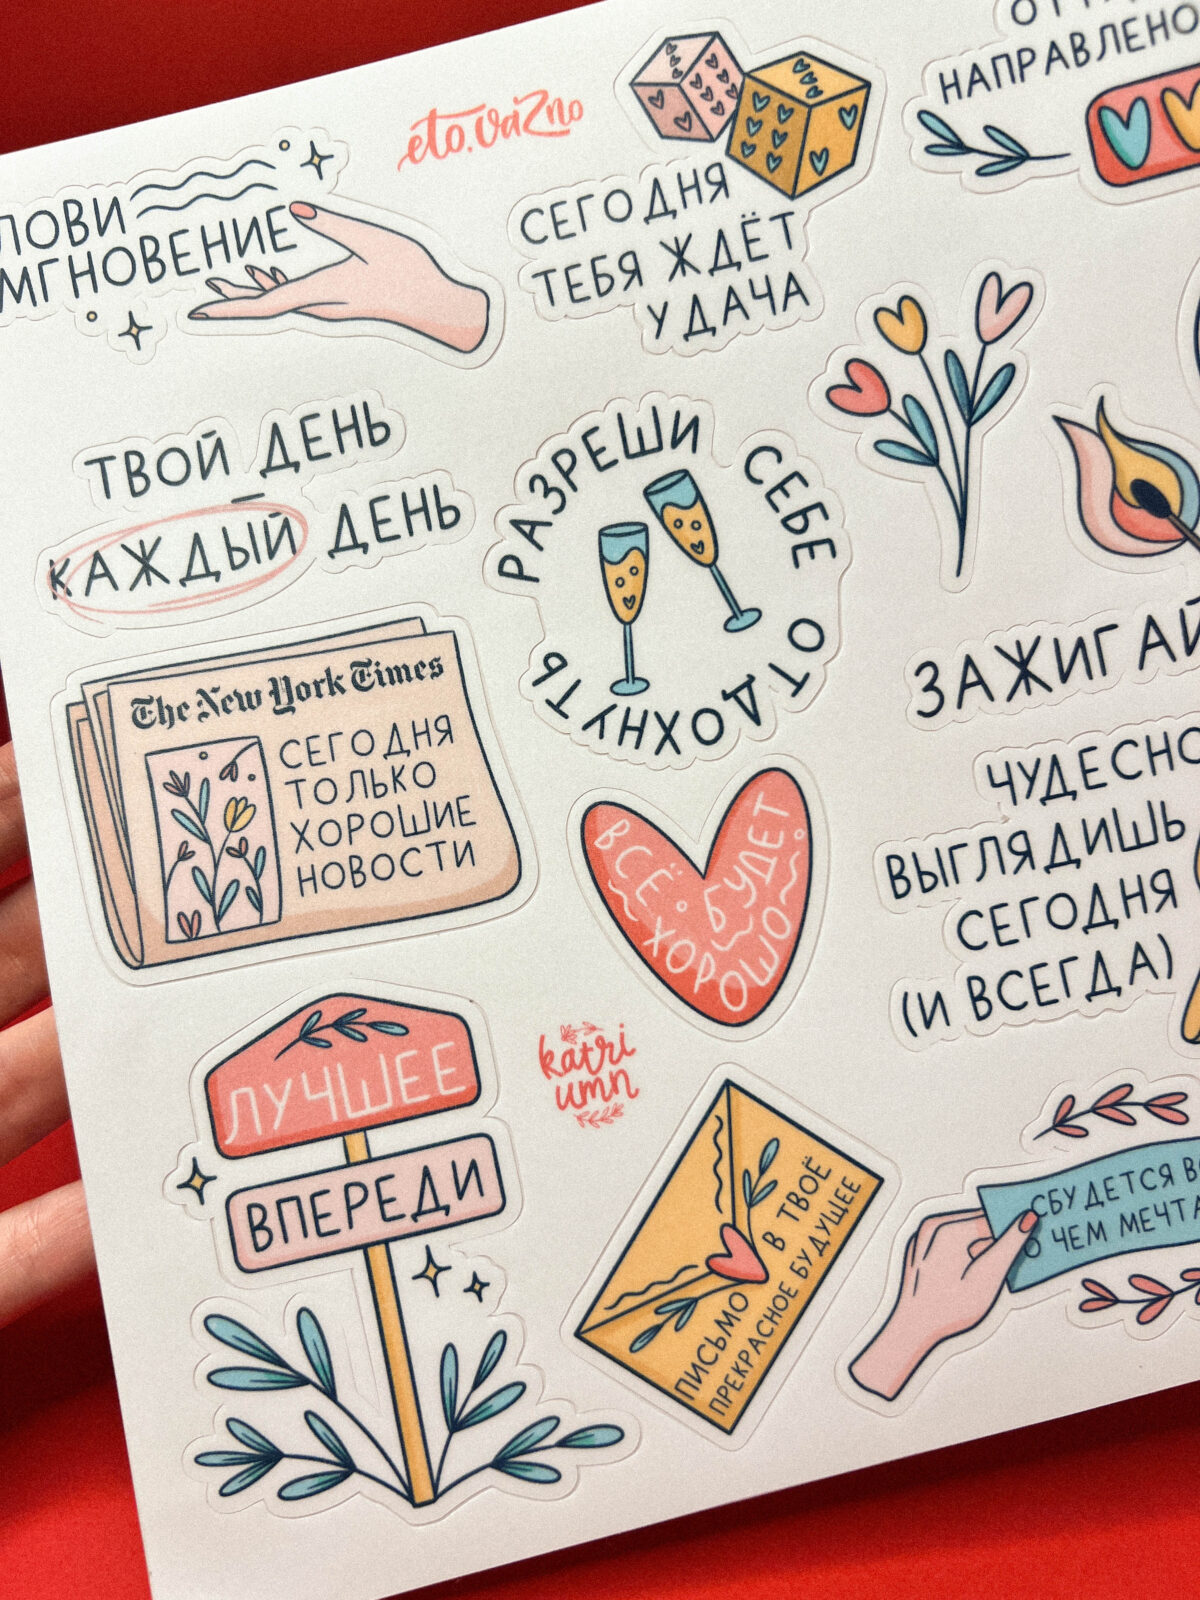 eto.vaZno
ЛОВИ
МГНОВЕНИЕ
СЕГОДНЯ
ТЕБЯ ЖДЁТ
УДАЧА
НАПРАВЛЕНО
ТВОЙ ДЕНЬ
КАЖДЫЙ ДЕНЬ
РАЗРЕШИ СЕБЕ ОТДОХНУТЬ
ЗАЖИГАЙ
The New York Times
СЕГОДНЯ
ТОЛЬКО
ХОРОШИЕ
НОВОСТИ
ВСЁ БУДЕТ
ХОРОШО
ЧУДЕСНО
ВЫГЛЯДИШЬ
СЕГОДНЯ
(И ВСЕГДА)
ЛУЧШЕЕ
ВПЕРЕДИ
katri
umn
ПИСЬМО В ТВОЁ
ПРЕКРАСНОЕ БУДУЩЕЕ
СБУДЕТСЯ
О ЧЕМ